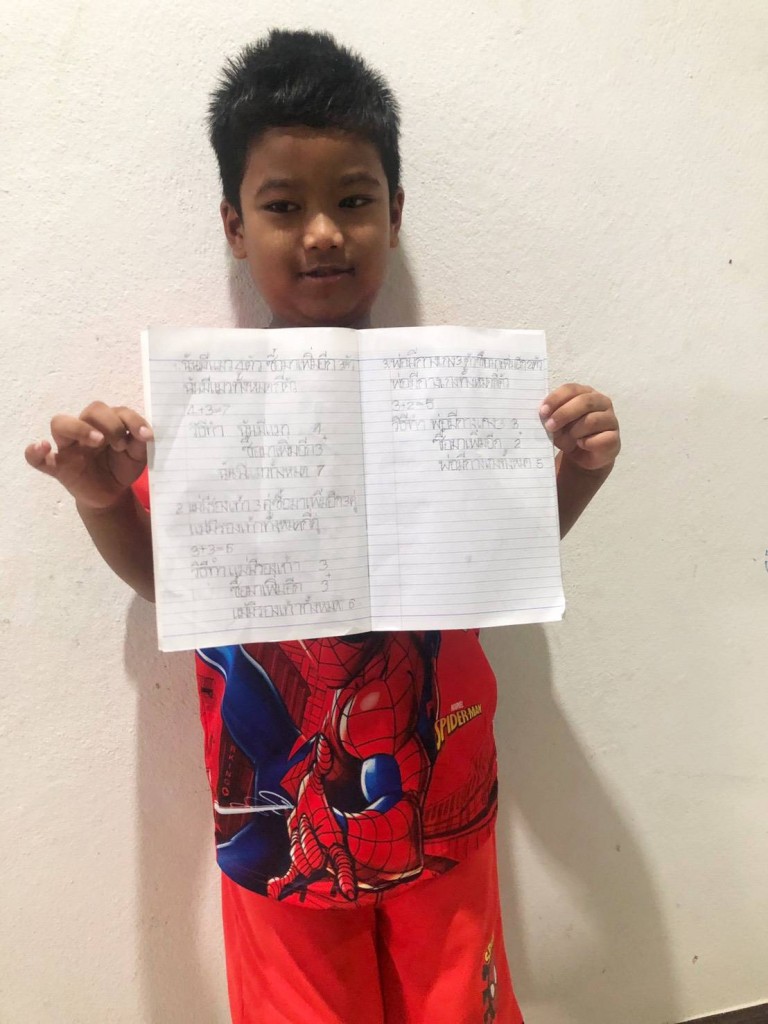 ฉันมีแมว 4 ตัว ซื้อมาเพิ่มอีก 3 ตัว
ฉันมีแมวทั้งหมดกี่ตัว
4+3=7
วิธีทำ ฉันมีแมว 4
ซื้อมาเพิ่มอีก 3
ฉันมีแมวทั้งหมด 7
2 แม่มีรองเท้า 3 คู่ ซื้อมาเพิ่มอีก 3 คู่
แม่มีรองเท้าทั้งหมดกี่คู่
3+3=6
วิธีทำ แม่มีรองเท้า 3
ซื้อมาเพิ่มอีก 3
แม่มีรองเท้าทั้งหมด 6
3 พ่อมีกางเกง 3 ตัว
พ่อมีกางเกงทั้งหมดกี่ตัว
3+2=5
วิธีทำ พ่อมีกางเกง 3
ซื้อมาเพิ่มอีก 2
พ่อมีกางเกงทั้งหมด 5
MARVEL
SPIDER-MAN